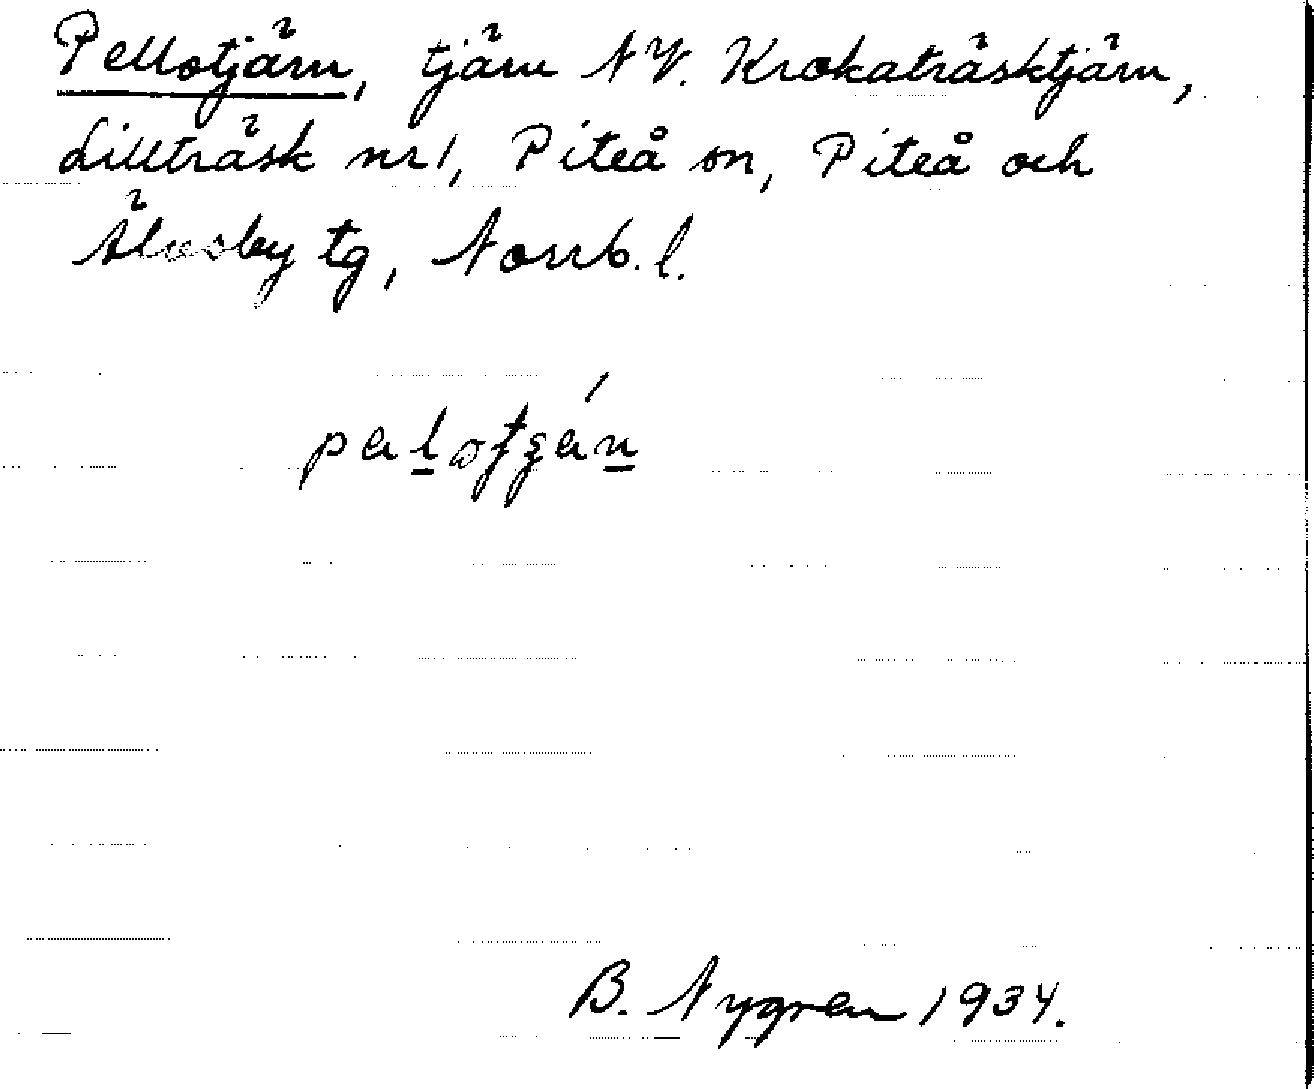 Pellotjärn, tjärn NV. Krokaträsktjärn,
Lillträsk nr 1, Piteå sn, Piteå och
Älvsby tg, Norrb. l.
B. Nygren 1934.